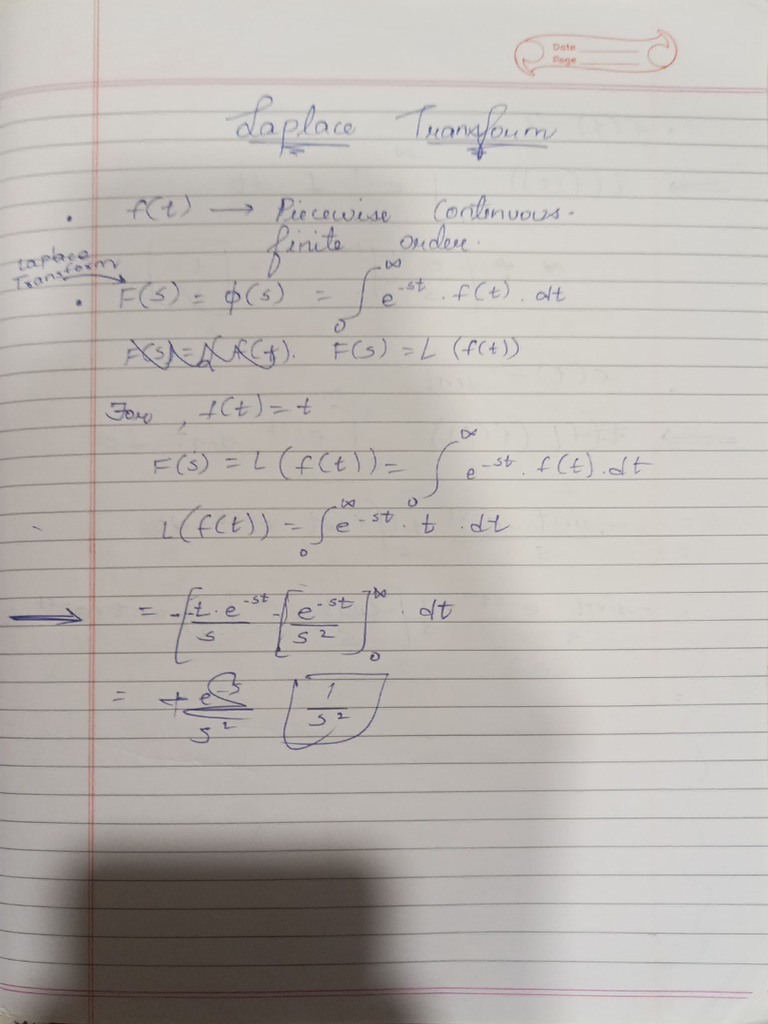 Date
Page
Laplace Transform
• f(t) → Piecewise Continuous.
finite order.
Laplace Transform
• F(s) = φ(s) = ∫₀^∞ e^-st . f(t) . dt
F(s) = L (f(t))
For, f(t) = t
F(s) = L (f(t)) = ∫₀^∞ e^-st . f(t) . dt
L(f(t)) = ∫₀^∞ e^-st . t . dt
→ = -[t . e^-st / s - [e^-st / s²]₀^∞ . dt
= + / s² 1 / s²